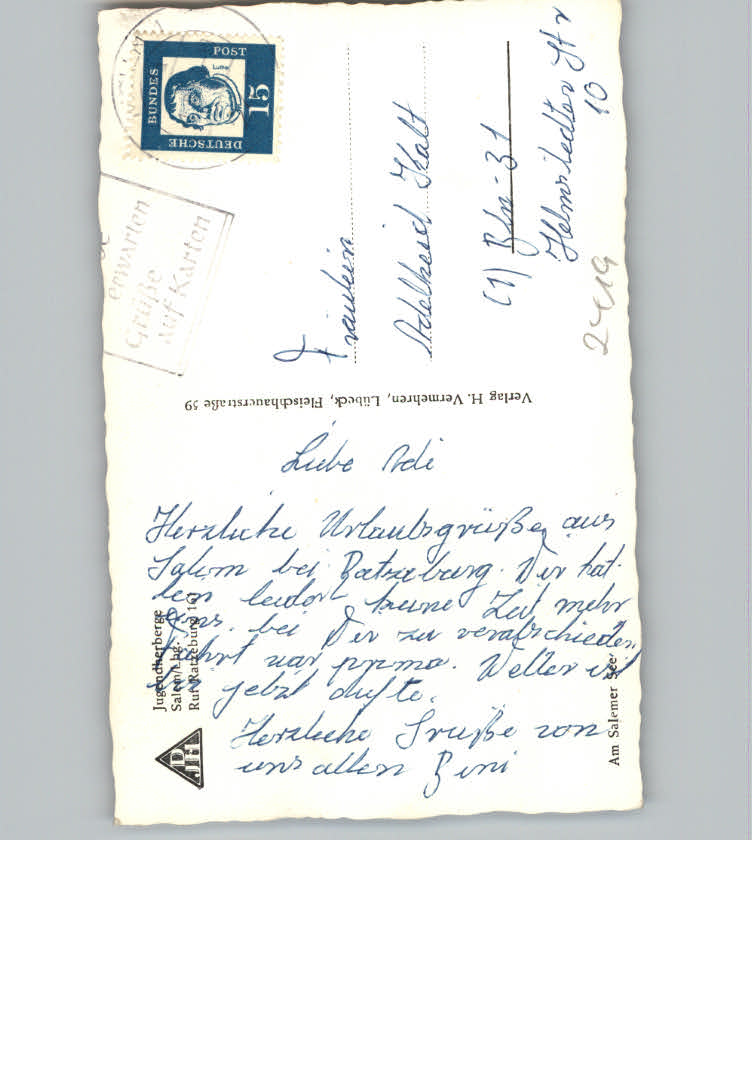 DEUTSCHE
BUNDES
POST
Luther
15
erwarten
Grüße
auf Karten
Fräulein
Adelheid Kalt
(1) Bln-31
Helmstedter Str
10
Verlag H. Vermehren, Lübeck, Fleischhauerstraße 59
Liebe Adi
Herzliche Urlaubsgrüße aus
Salem bei Ratzeburg. Wir hat-
ten leider keine Zeit mehr
uns bei Dir zu verabschieden.
Fahrt war prima. Wetter ist
jetzt dufte.
Herzliche Grüße von
uns allen Beni
Jugendherberge
Salem/Lbg.
Ruf Ratzeburg
DJH
Am Salemer See